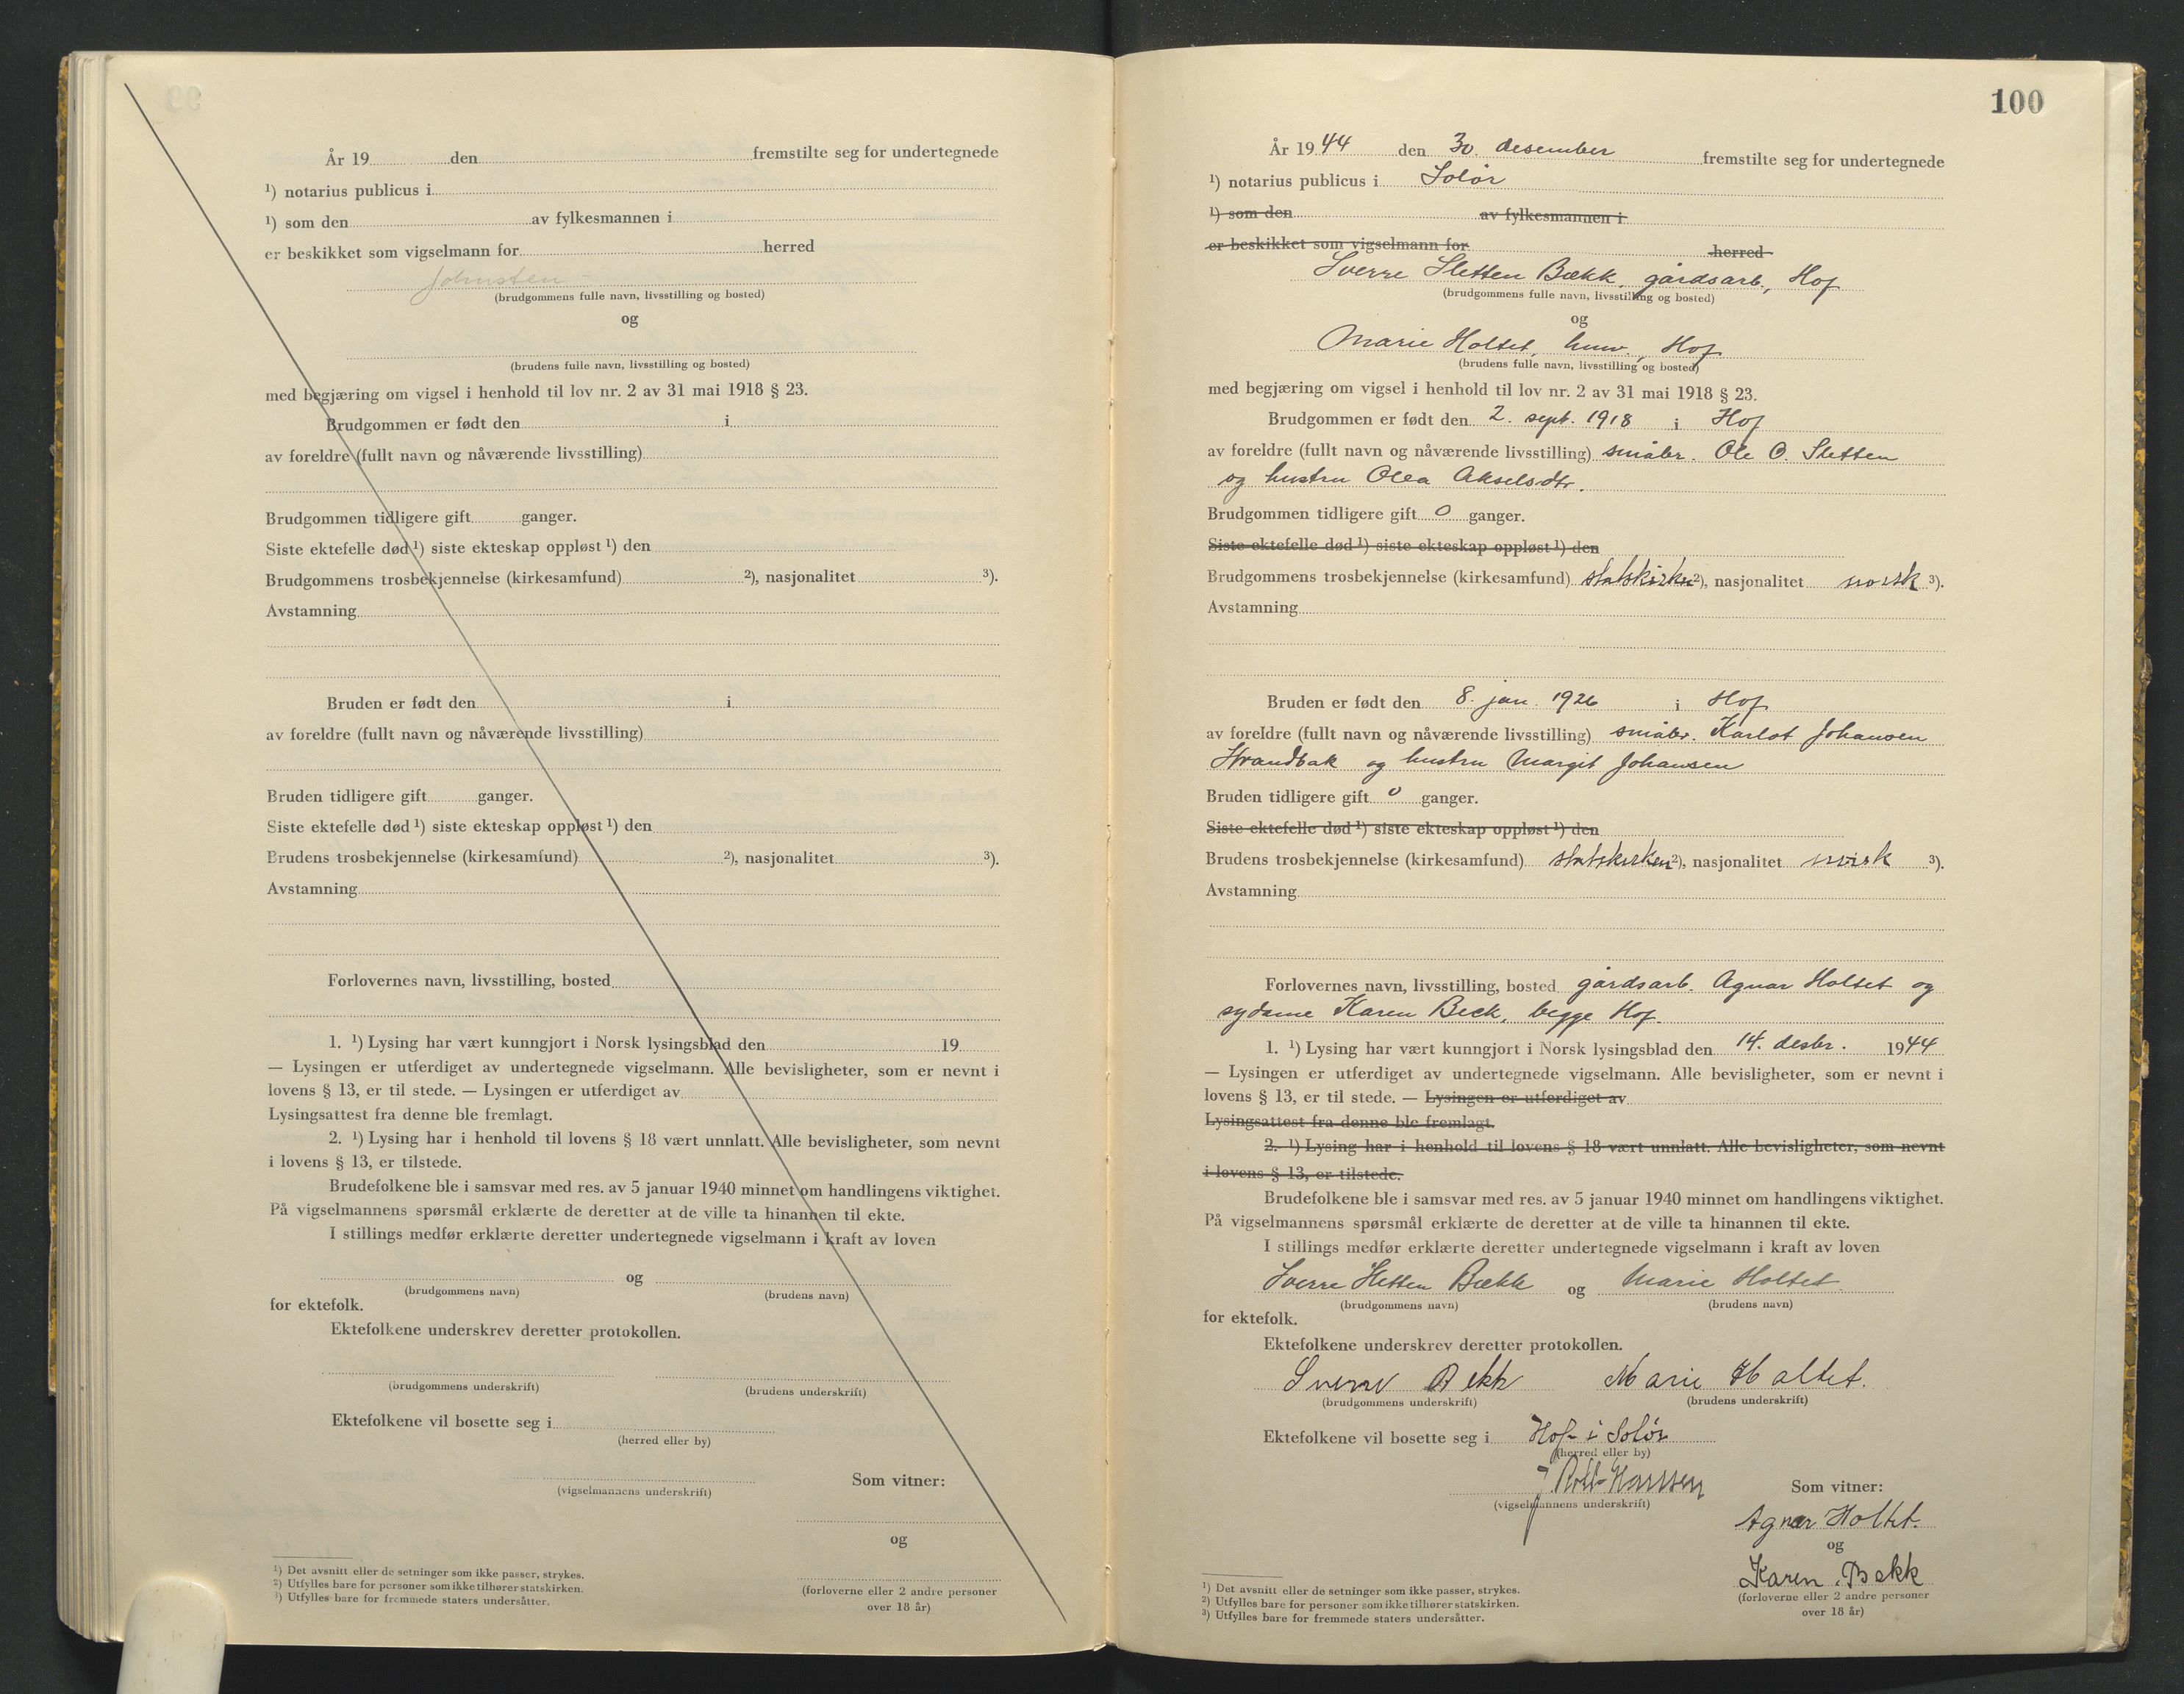 År 19 den fremstilte seg for undertegnede
¹) notarius publicus i
¹) som den av fylkesmannen i
er beskikket som vigselmann for herred
Johnsten
(brudgommens fulle navn, livsstilling og bosted)
og
(brudens fulle navn, livsstilling og bosted)
med begjæring om vigsel i henhold til lov nr. 2 av 31 mai 1918 § 23.
Brudgommen er født den i
av foreldre (fullt navn og nåværende livsstilling)
Brudgommen tidligere gift ganger.
Siste ektefelle død ¹) siste ekteskap oppløst ¹) den
Brudgommens trosbekjennelse (kirkesamfund) ²), nasjonalitet ³).
Avstamning
Bruden er født den i
av foreldre (fullt navn og nåværende livsstilling)
Bruden tidligere gift ganger.
Siste ektefelle død ¹) siste ekteskap oppløst ¹) den
Brudens trosbekjennelse (kirkesamfund) ²), nasjonalitet ³).
Avstamning
Forlovernes navn, livsstilling, bosted
1. ¹) Lysing har vært kunngjort i Norsk lysingsblad den 19
— Lysingen er utferdiget av undertegnede vigselmann. Alle bevisligheter, som er nevnt i
lovens § 13, er til stede. — Lysingen er utferdiget av
Lysingsattest fra denne ble fremlagt.
2. ¹) Lysing har i henhold til lovens § 18 vært unnlatt. Alle bevisligheter, som nevnt
i lovens § 13, er tilstede.
Brudefolkene ble i samsvar med res. av 5 januar 1940 minnet om handlingens viktighet.
På vigselmannens spørsmål erklærte de deretter at de ville ta hinannen til ekte.
I stillings medfør erklærte deretter undertegnede vigselmann i kraft av loven
og
(brudgommens navn) (brudens navn)
for ektefolk.
Ektefolkene underskrev deretter protokollen.
(brudgommens underskrift) (brudens underskrift)
Ektefolkene vil bosette seg i
(herred eller by)
Som vitner:
(vigselmannens underskrift)
og
(forloverne eller 2 andre personer
over 18 år)
¹) Det avsnitt eller de setninger som ikke passer, strykes.
²) Utfylles bare for personer som ikke tilhører statskirken.
³) Utfylles bare for fremmede staters undersåtter.
100
År 1944 den 30. desember fremstilte seg for undertegnede
¹) notarius publicus i Solør
¹) som den av fylkesmannen i
er beskikket som vigselmann for herred
Sverre Sletten Bækk, gårdsarb., Hof
(brudgommens fulle navn, livsstilling og bosted)
og
Marie Holtet, husv., Hof
(brudens fulle navn, livsstilling og bosted)
med begjæring om vigsel i henhold til lov nr. 2 av 31 mai 1918 § 23.
Brudgommen er født den 2. sept. 1918 i Hof
av foreldre (fullt navn og nåværende livsstilling) småbr. Ole O. Sletten
og hustru Olea Akselsdtr.
Brudgommen tidligere gift 0 ganger.
Siste ektefelle død ¹) siste ekteskap oppløst ¹) den
Brudgommens trosbekjennelse (kirkesamfund) statskirken ²), nasjonalitet norsk ³).
Avstamning
Bruden er født den 8. jan. 1926 i Hof
av foreldre (fullt navn og nåværende livsstilling) småbr. Karlot Johansen
Strandbak og hustru Margit Johansen
Bruden tidligere gift 0 ganger.
Siste ektefelle død ¹) siste ekteskap oppløst ¹) den
Brudens trosbekjennelse (kirkesamfund) statskirken ²), nasjonalitet norsk ³).
Avstamning
Forlovernes navn, livsstilling, bosted gårdsarb. Agnar Holtet og
sydame Karen Beck, begge Hof.
1. ¹) Lysing har vært kunngjort i Norsk lysingsblad den 14. desbr. 1944
— Lysingen er utferdiget av undertegnede vigselmann. Alle bevisligheter, som er nevnt i
lovens § 13, er til stede. — Lysingen er utferdiget av
Lysingsattest fra denne ble fremlagt.
2. ¹) Lysing har i henhold til lovens § 18 vært unnlatt. Alle bevisligheter, som nevnt
i lovens § 13, er tilstede.
Brudefolkene ble i samsvar med res. av 5 januar 1940 minnet om handlingens viktighet.
På vigselmannens spørsmål erklærte de deretter at de ville ta hinannen til ekte.
I stillings medfør erklærte deretter undertegnede vigselmann i kraft av loven
Sverre Sletten Bækk og Marie Holtet
(brudgommens navn) (brudens navn)
for ektefolk.
Ektefolkene underskrev deretter protokollen.
Sverre Bekk Marie Holtet.
(brudgommens underskrift) (brudens underskrift)
Ektefolkene vil bosette seg i Hof i Solør
(herred eller by)
Hanssen Som vitner:
(vigselmannens underskrift)
Agnar Holtet.
og
Karen Bekk
(forloverne eller 2 andre personer
over 18 år)
¹) Det avsnitt eller de setninger som ikke passer, strykes.
²) Utfylles bare for personer som ikke tilhører statskirken.
³) Utfylles bare for fremmede staters undersåtter.